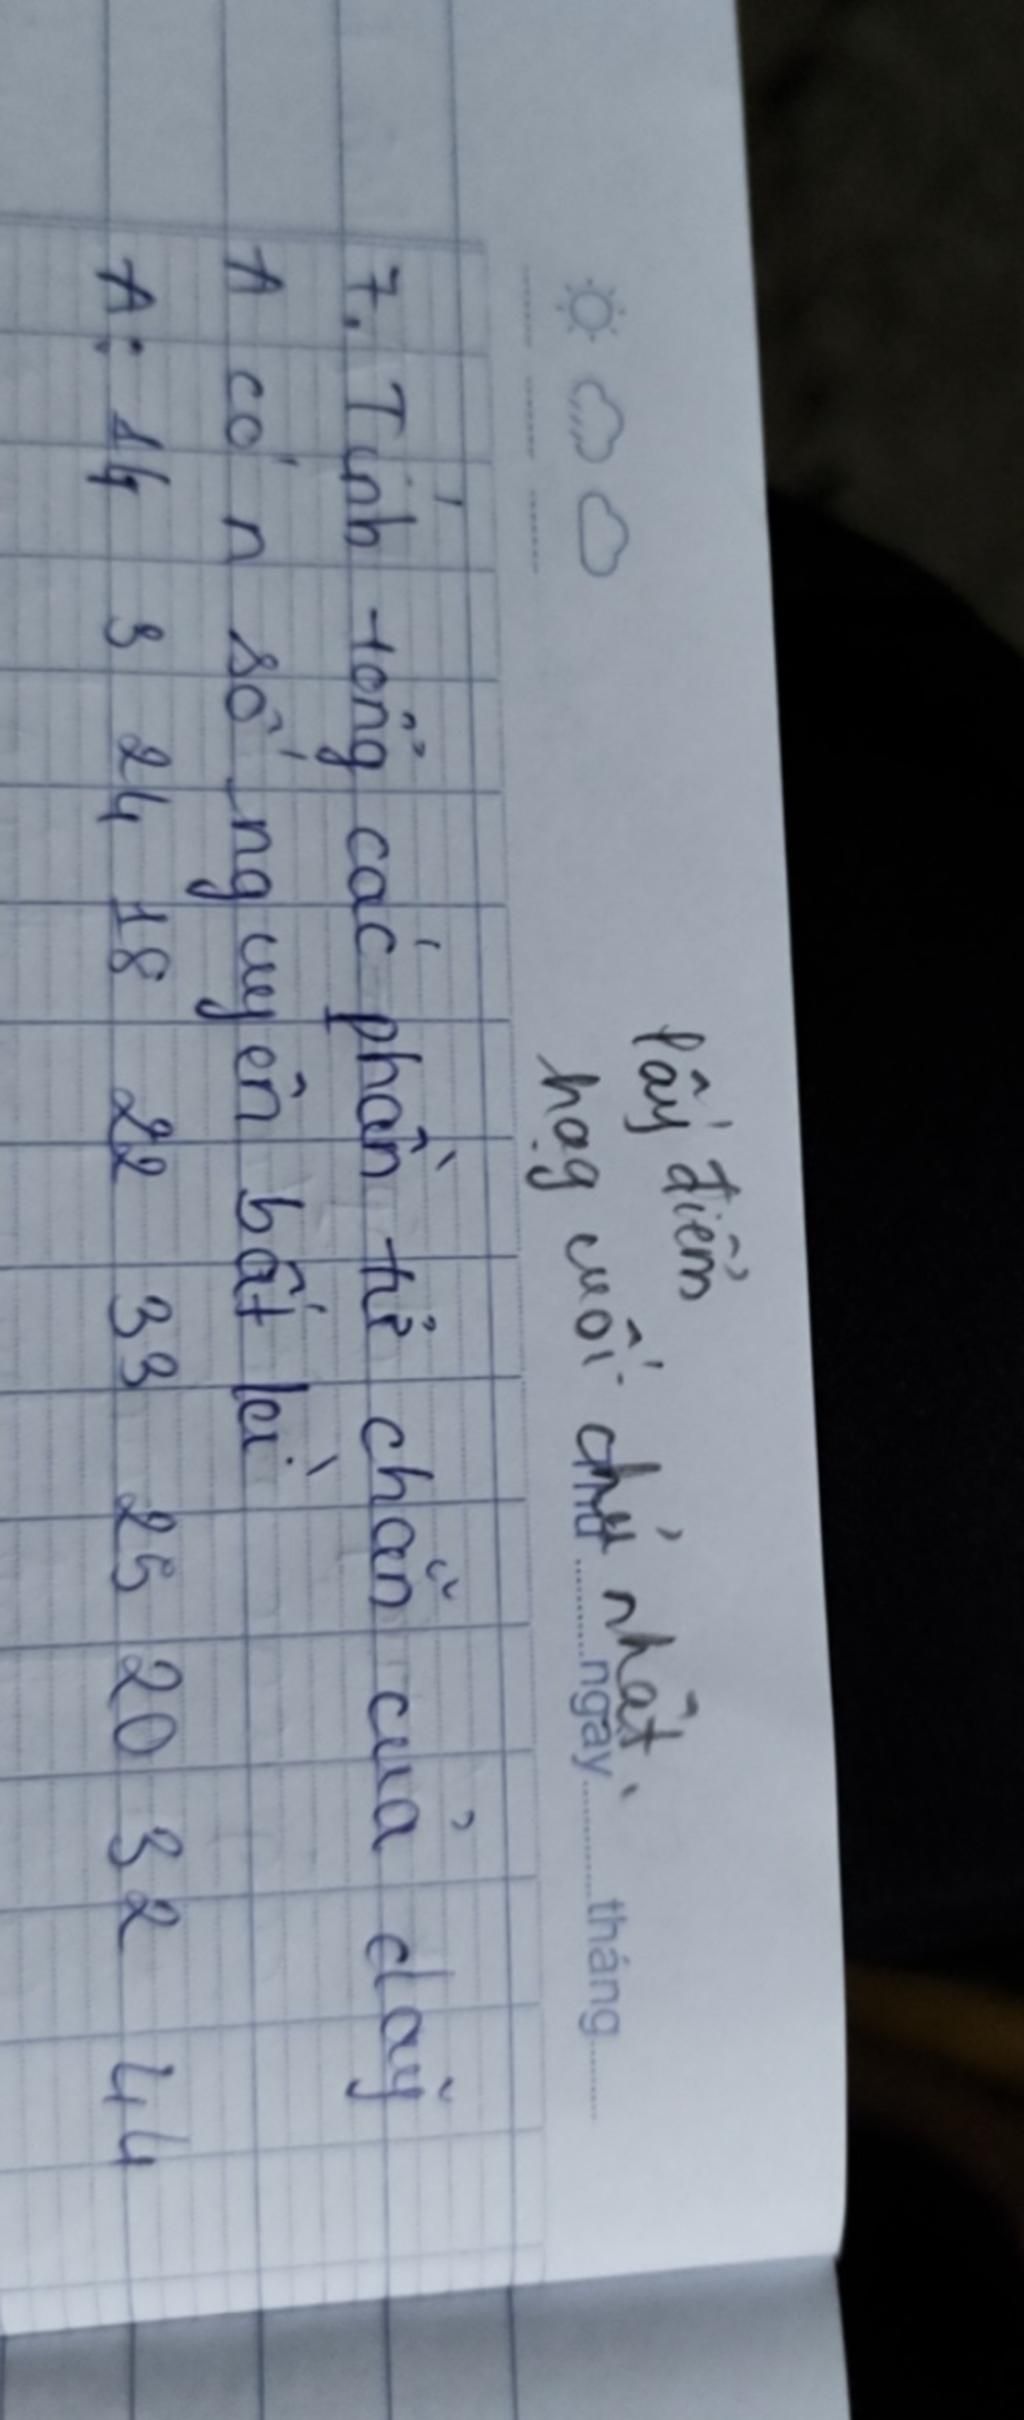 lấy điểm
hạg cuối chủ nhật
Thứ ..........ngày..............tháng........
7. Tính tổng các phần tử chẵn của dãy
A có n số nguyên bất kì
A: 14 3 24 18 22 33 25 20 32 44